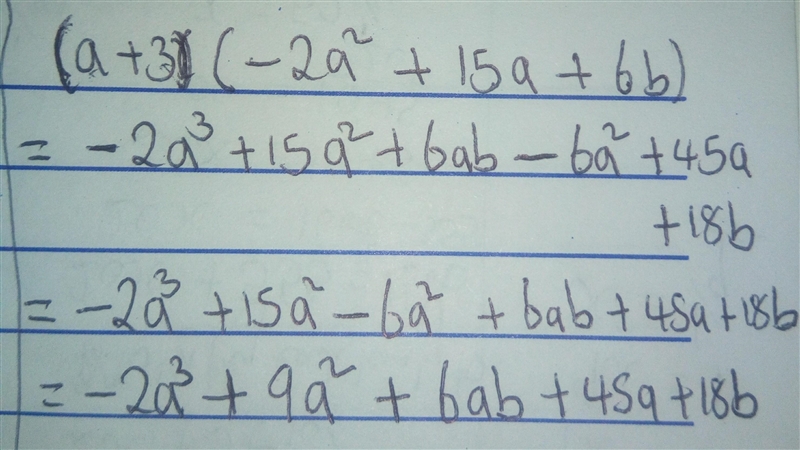 (a+3) (-2a² + 15a + 6b)
= -2a³ +15a² + 6ab - 6a² +45a
+18b
= -2a³ +15a² - 6a² + 6ab + 45a +18b
= -2a³ + 9a² + 6ab + 45a +18b